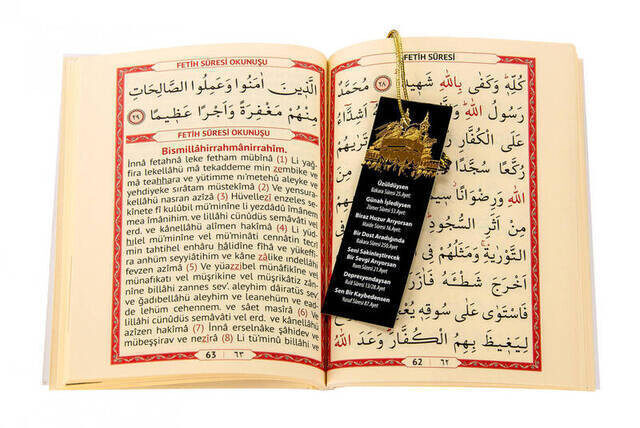 FETİH SÛRESİ
كُلِّهِ وَكَفَى بِاللهِ شَهِيدًا ﴿٢٨﴾ مُحَمَّدٌ
رَسُولُ اللهِ
اَشِدَّاءُ
عَلَى الْكُفَّارِ
تَرٰيهُمْ
رُكَّعًا سُجَّدًا
اللهِ وَرِضْوَانًا
مِنْ اَثَرِ السُّجُودِ
التَّوْرٰيةِ وَمَثَلُهُمْ فِي
اَخْرَجَ شَطْئَهُ فَاٰزَرَهُ
فَاسْتَوٰى عَلٰى سُوقِهِ يُعْجِبُ
لِيَغِيظَ بِهِمُ الْكُفَّارَ وَعَدَ اللهُ
62 ٦٢
Üzüldüysen
Bakara Sûresi 25.Ayet
Günah İşlediysen
Zümer Sûresi 53.Ayet
Biraz Huzur Arıyorsan
Maide Sûresi 16.Ayet
Bir Dost Aradığında
Bakara Sûresi 256.Ayet
Seni Sakinleştirecek
Bir Sevgi Arıyorsan
Rum Sûresi 21.Ayet
Depresyondaysan
Rad Sûresi 13/28.Ayet
Sen Bir Kaybedensen
Yusuf Sûresi 87.Ayet
FETİH SÛRESİ OKUNUŞU
الَّذِينَ اٰمَنُوا وَعَمِلُوا الصَّالِحَاتِ
مِنْهُمْ مَغْفِرَةً وَاَجْرًا عَظِيمًا ﴿٢٩﴾
FETİH SÛRESİ OKUNUŞU
Bismillâhirrahmânirrahîm.
İnnâ fetahnâ leke fethan mübînâ (1) Li yağ-
fira lekellâhü mâ tekaddeme min zembike ve
mâ teahhara ve yütimme ni'metehû aleyke ve
yehdiyeke sırâtam müstekîmâ (2) Ve yensura-
kellâhü nasran azîzâ (3) Hüvellezî enzeles se-
kînete fî kulûbil mü'minîne li yezdâdû îmânem
mea îmânihim. ve lillâhi cünûdüs semâvâti vel
erd. ve kânellâhü alîmen hakîmâ (4) Li yüd-
hılel mü'minîne vel mü'minâti cennâtin tecrî
min tahtihel enhâru hâlidîne fîhâ ve yükeffi-
ra anhüm seyyiâtihim ve kâne zâlike ındellâhi
fevzen azîmâ (5) Ve yüazzibel münâfikîne vel
münafikati vel müşrikîne vel müşrikâtiz zân-
nîne billâhi zannes sev'. aleyhim dâiratüs sev'.
ve ğadıbellâhü aleyhim ve leanehüm ve ead-
de lehüm cehennem. ve sâet masîrâ (6) Ve
lillâhi cünûdüs semâvâti vel erd. ve kânellâhü
azîzen hakîmâ (7) İnnâ erselnâke şâhidev ve
mübeşşirav ve nezîrâ (8) Li tü'minû billâhi ve
63 ٦٣